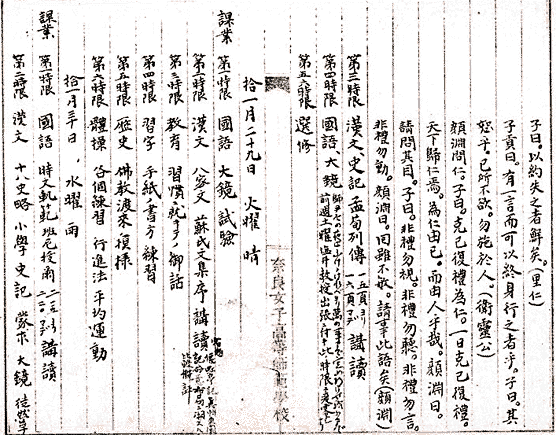 子曰。以約失之者鮮矣。(里仁)
子貢曰。有一言而可以終身行之者乎。子曰。其
恕乎。己所不欲。勿施於人。(衛靈公)
顔淵問仁。子曰。克己復禮為仁。一日克己復禮。
天下歸仁焉。為仁由己。而由人乎哉。顔淵曰。
請問其目。子曰。非禮勿視。非禮勿聽。非禮勿言。
非禮勿動。顔淵曰。回雖不敏。請事此語矣(顔淵)
第三時限 漢文 史記 孟荀列傳 講讀
第四時限 國語、大鏡
第五六時限 選修
拾一月二十九日 火曜 晴
課業 第一時限 國語 大鏡 試驗
第二時限 漢文 八家文 蘇氏文集序 講讀
第三時限 教育 習慣ニ就キテノ御話
第四時限 習字 手紙ノ書方練習
第五時限 歴史 佛教渡來模様
第六時限 體操 各個練習 行進法 平均運動
拾一月三十日、水曜 雨
課業 第一時限 國語 時文軌範 講讀
第二時限 漢文 十八史略 小學 史記 蒙求 大鏡 徒然草
奈良女子高等師範學校